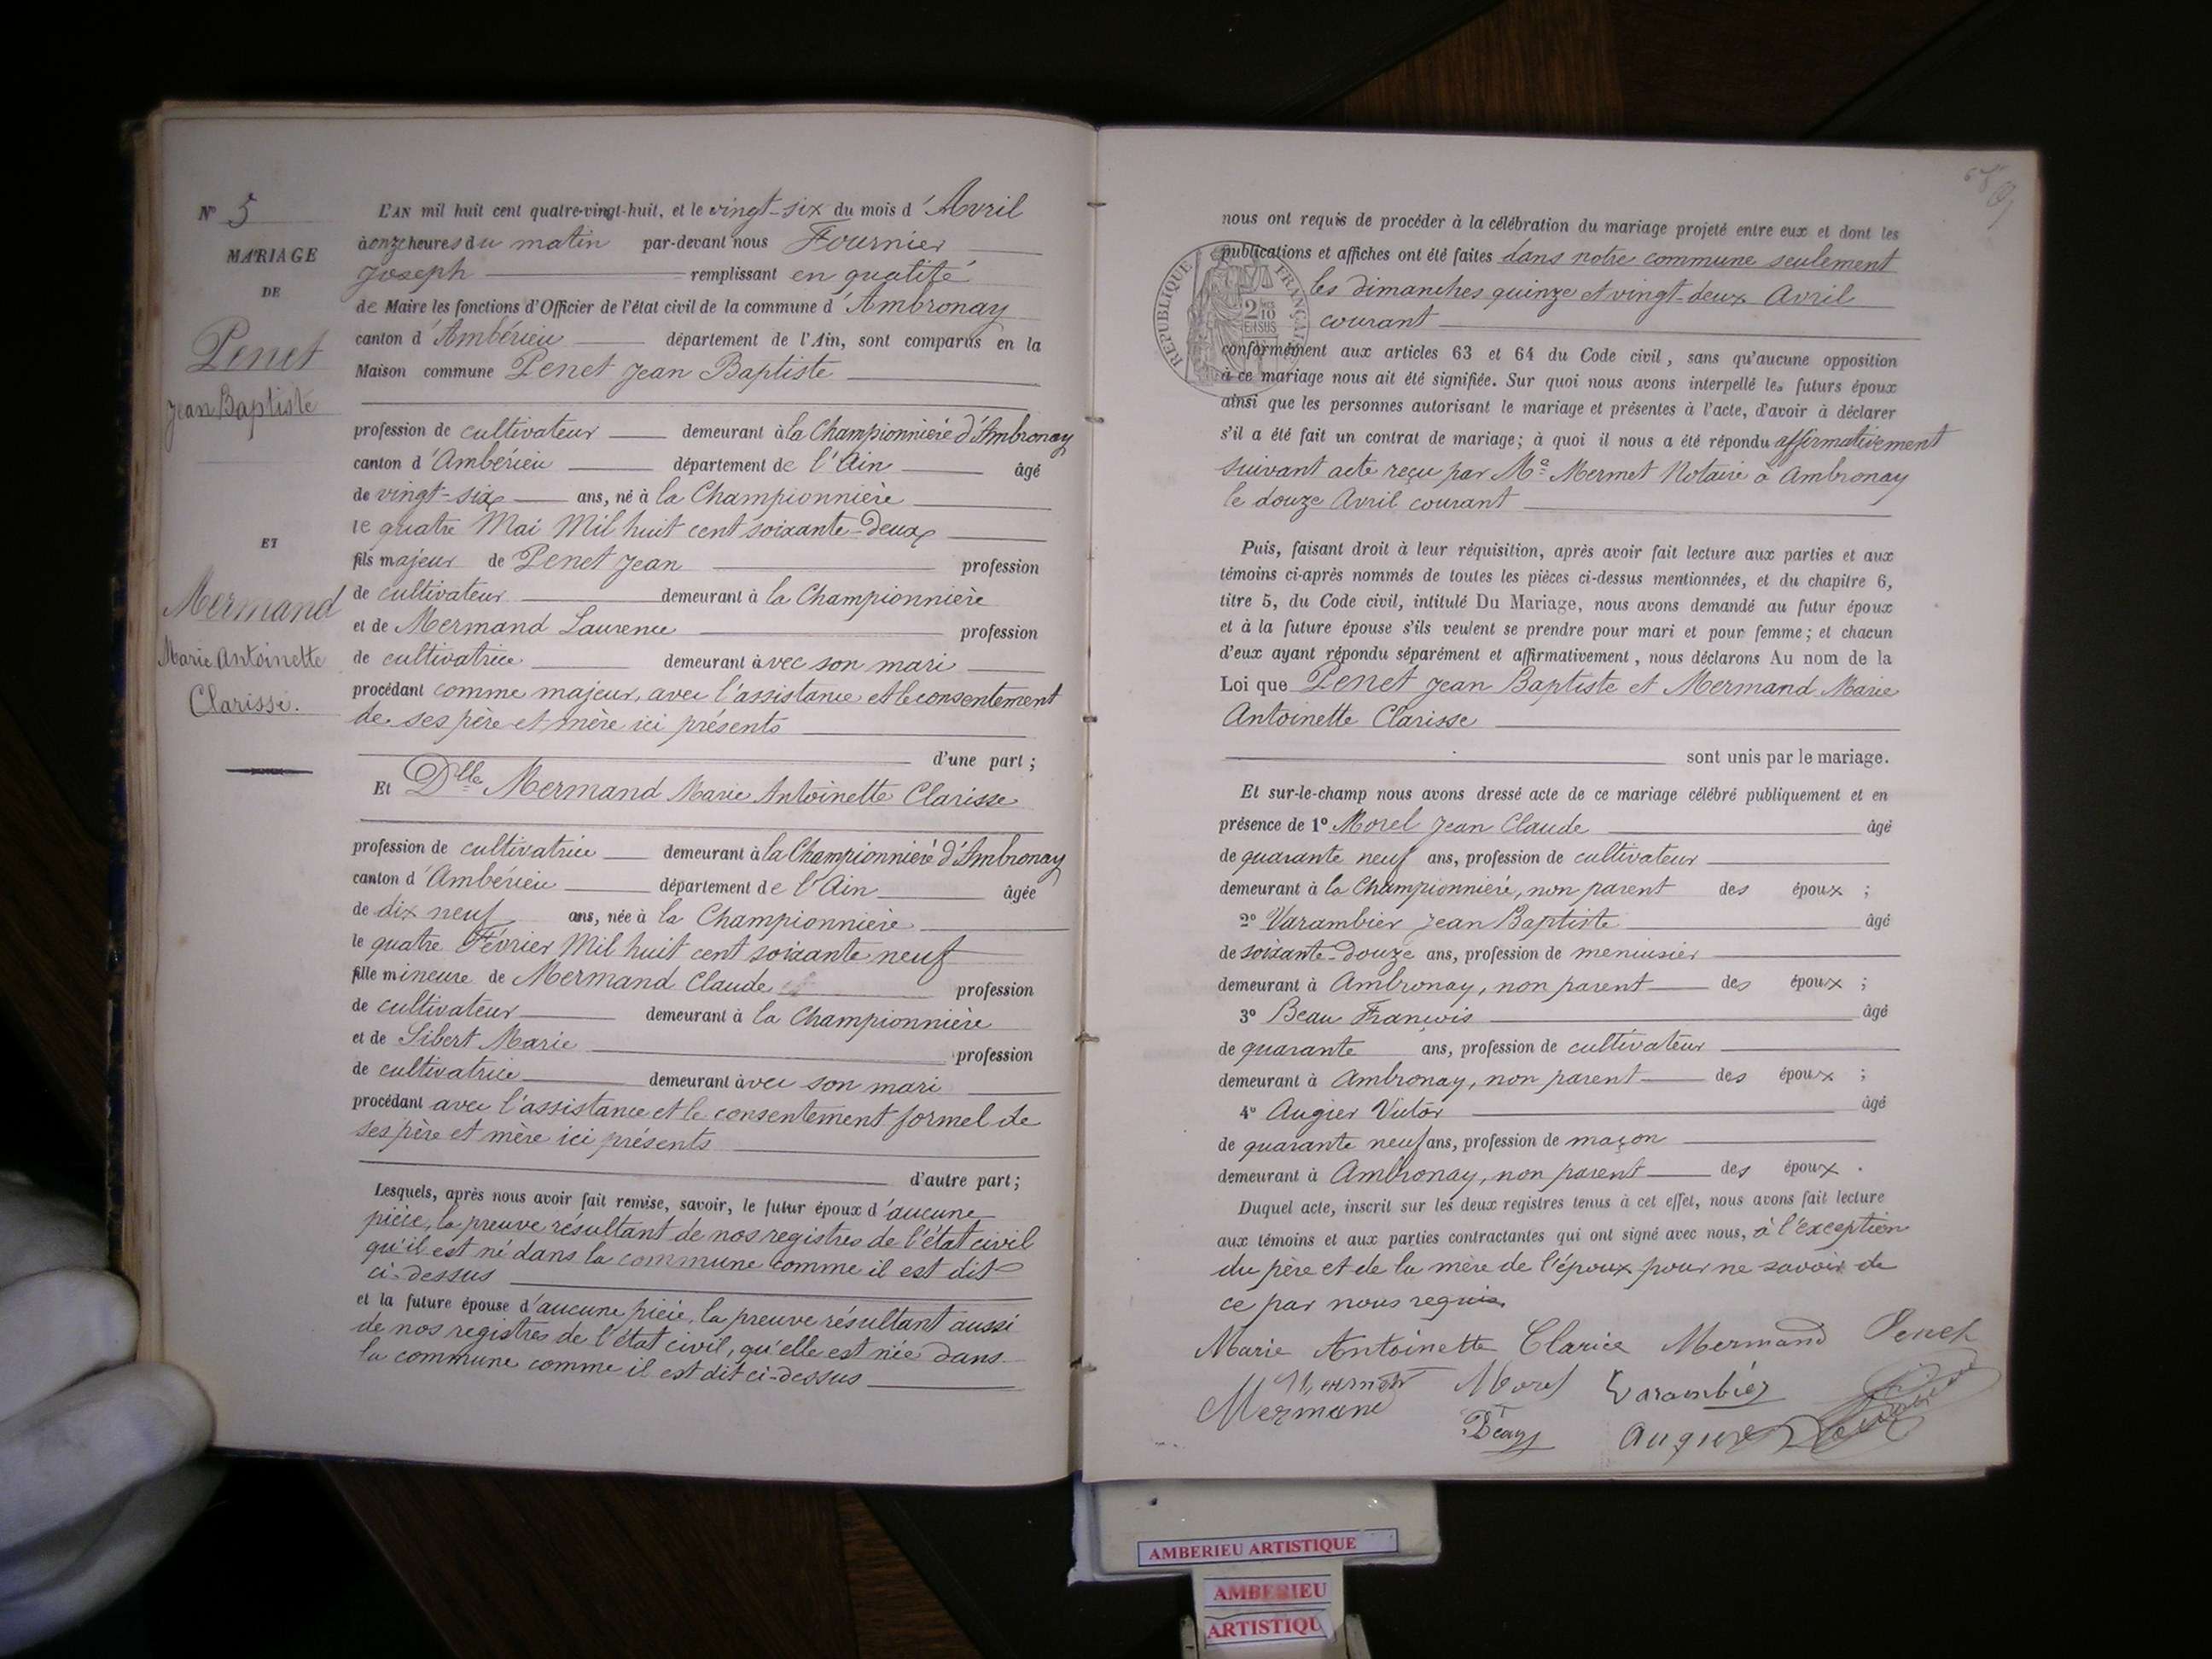 N° 5
MARIAGE
DE
Penet
Jean Baptiste
ET
Mermand
Marie Antoinette
Clarisse.
L'AN mil huit cent quatre-vingt-huit, et le vingt-six du mois d'Avril
à onze heures du matin par-devant nous Fournier
Joseph remplissant en qualité
de Maire les fonctions d'Officier de l'état civil de la commune d'Ambronay
canton d'Ambérieu département de l'Ain, sont comparus en la
Maison commune Penet Jean Baptiste
profession de cultivateur demeurant à la Championnière d'Ambronay
canton d'Ambérieu département de l'Ain âgé
de vingt-six ans, né à la Championnière
le quatre Mai Mil huit cent soixante-deux
fils majeur de Penet Jean profession
de cultivateur demeurant à la Championnière
et de Mermand Laurence profession
de cultivatrice demeurant avec son mari
procédant comme majeur, avec l'assistance et le consentement
de ses père et mère ici présents
d'une part ;
Et Dlle Mermand Marie Antoinette Clarisse
profession de cultivatrice demeurant à la Championnière d'Ambronay
canton d'Ambérieu département de l'Ain âgée
de dix neuf ans, née à la Championnière
le quatre Février Mil huit cent soixante neuf
fille mineure de Mermand Claude profession
de cultivateur demeurant à la Championnière
et de Sibert Marie profession
de cultivatrice demeurant avec son mari
procédant avec l'assistance et le consentement formel de
ses père et mère ici présents
d'autre part ;
Lesquels, après nous avoir fait remise, savoir, le futur époux d'aucune
pièce, la preuve résultant de nos registres de l'état civil
qu'il est né dans la commune comme il est dit
ci-dessus
et la future épouse d'aucune pièce, la preuve résultant aussi
de nos registres de l'état civil, qu'elle est née dans
la commune comme il est dit ci-dessus
nous ont requis de procéder à la célébration du mariage projeté entre eux et dont les
publications et affiches ont été faites dans notre commune seulement
les dimanches quinze et vingt-deux Avril
courant
RÉPUBLIQUE FRANÇAISE
conformément aux articles 63 et 64 du Code civil, sans qu'aucune opposition
à ce mariage nous ait été signifiée. Sur quoi nous avons interpellé les futurs époux
ainsi que les personnes autorisant le mariage et présentes à l'acte, d'avoir à déclarer
s'il a été fait un contrat de mariage ; à quoi il nous a été répondu affirmativement
suivant acte reçu par Me Mermet Notaire à Ambronay
le douze Avril courant
Puis, faisant droit à leur réquisition, après avoir fait lecture aux parties et aux
témoins ci-après nommés de toutes les pièces ci-dessus mentionnées, et du chapitre 6,
titre 5, du Code civil, intitulé Du Mariage, nous avons demandé au futur époux
et à la future épouse s'ils veulent se prendre pour mari et pour femme ; et chacun
d'eux ayant répondu séparément et affirmativement, nous déclarons Au nom de la
Loi que Penet Jean Baptiste et Mermand Marie
Antoinette Clarisse
sont unis par le mariage.
Et sur-le-champ nous avons dressé acte de ce mariage célébré publiquement et en
présence de 1° Morel Jean Claude âgé
de quarante neuf ans, profession de cultivateur
demeurant à la Championnière, non parent des époux ;
2° Varambier Jean Baptiste âgé
de soixante-douze ans, profession de menuisier
demeurant à Ambronay, non parent des époux ;
3° Beau François âgé
de quarante ans, profession de cultivateur
demeurant à Ambronay, non parent des époux ;
4° Augier Victor âgé
de quarante neuf ans, profession de maçon
demeurant à Ambronay, non parent des époux.
Duquel acte, inscrit sur les deux registres tenus à cet effet, nous avons fait lecture
aux témoins et aux parties contractantes qui ont signé avec nous, à l'exception
du père et de la mère de l'époux pour ne savoir de
ce par nous requis.
Marie Antoinette Clarice Mermand Penet
Morel Varambier
Mermand
Augier
AMBERIEU ARTISTIQUE
AMBERIEU
ARTISTIQU